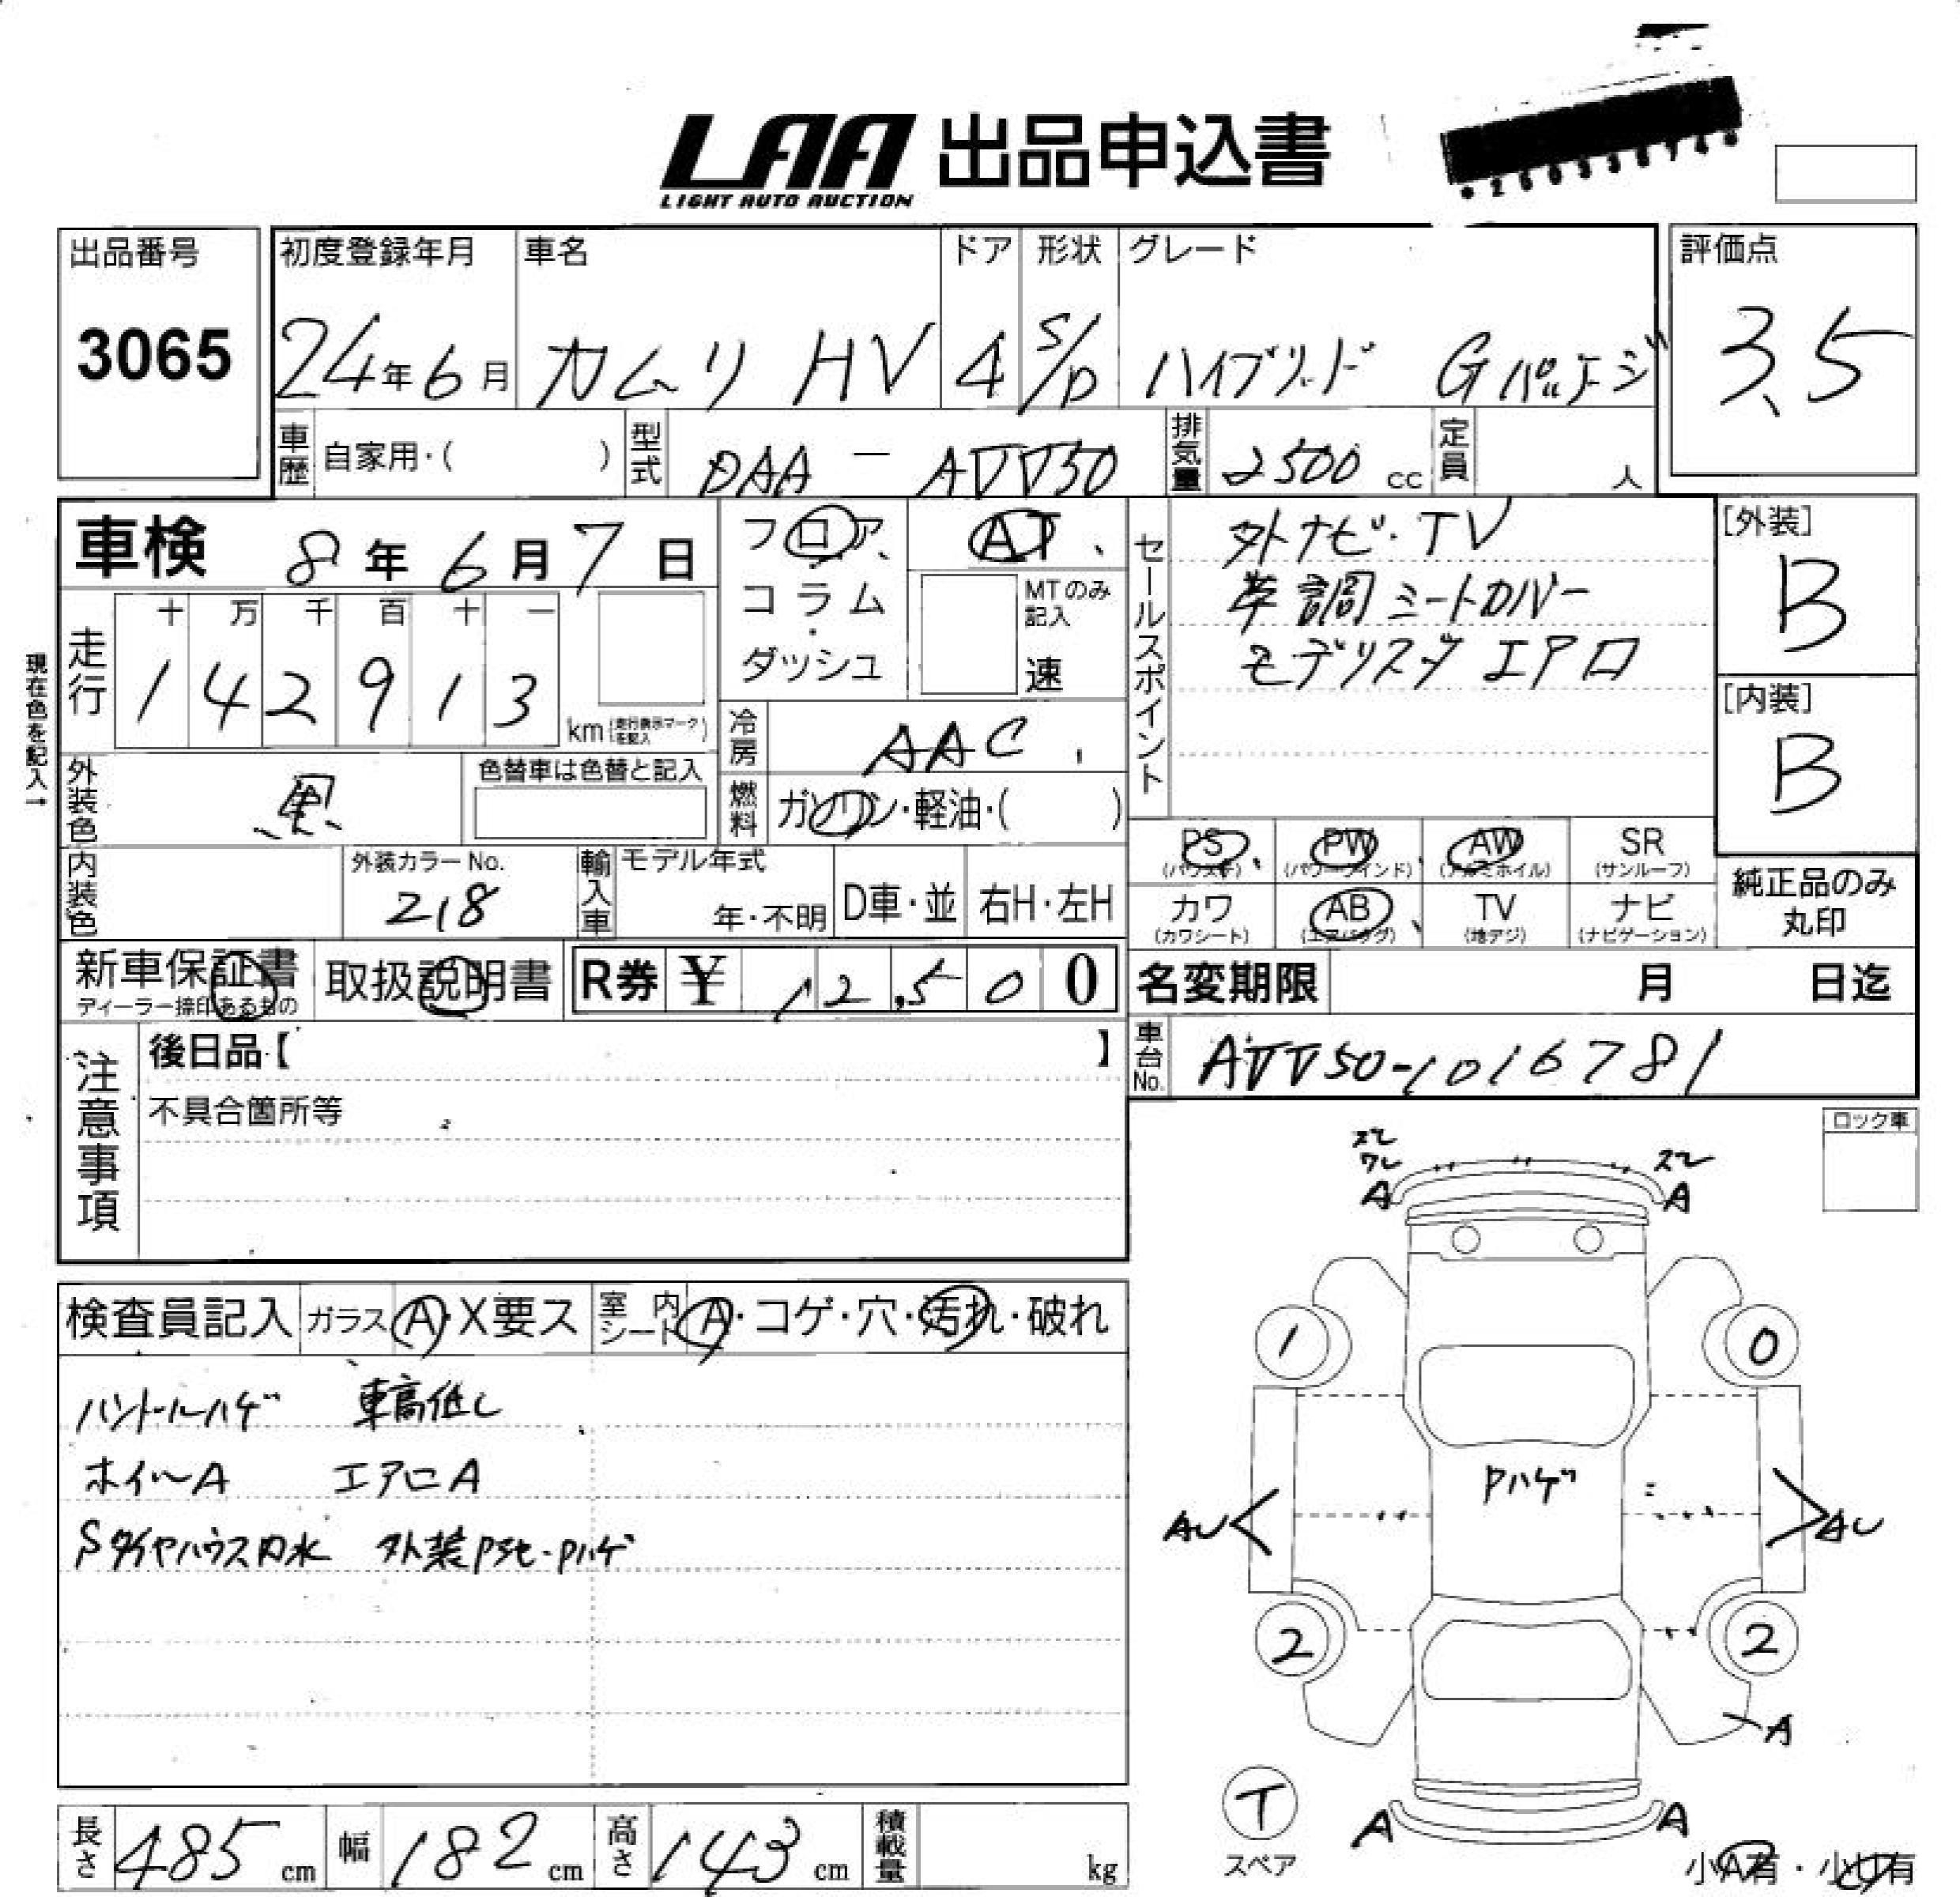 LAA 出品申込書
LIGHT AUTO AUCTION
出品番号
3065
初度登録年月
24年6月
車名
カムリ HV
ドア
4
形状
S/D
グレード
ハイブリッド Gパッケージ
評価点
3.5
車歴 自家用・( )
型式 DAA-AVV50
排気量 2500 cc
定員 人
車検 8年6月7日
フロア、
コラム・
ダッシュ
AT、
MTのみ記入
速
セールスポイント
外ナビ・TV
革調シートカバー
モデリスタ エアロ
[外装]
B
[内装]
B
現在色を記入→
走行 十 万 千 百 十 一
1 4 2 9 1 3 km (走行表示マークを記入)
冷房 AAC
燃料 ガソリン・軽油・( )
外装色 黒
色替車は色替と記入
内装色
外装カラーNo.
218
輸入車 モデル年式
年・不明 D車・並 右H・左H
PS (パワステ) PW (パワーウインド) AW (アルミホイル) SR (サンルーフ)
カワ (カワシート) AB (エアバッグ) TV (地デジ) ナビ (ナビゲーション)
純正品のみ
丸印
新車保証書
ディーラー捺印あるもの
取扱説明書
R券 ¥ 12,500
名変期限 月 日迄
車台No. AVV50-1016781
注意事項
後日品【 】
不具合箇所等
ロック車
検査員記入 ガラス A・X要ス 室内シート A・コゲ・穴・汚れ・破れ
ハンドルハゲ 車高低し
ホイールA エアロA
Sタイヤハウス内水 外装Pヤセ・Pハゲ
スレ
ワレ
A
スレ
A
1
0
Pハゲ
AU
AU
2
2
A
T
スペア
A
A
小A有・小U有
長さ 485 cm
幅 182 cm
高さ 143 cm
積載量 kg